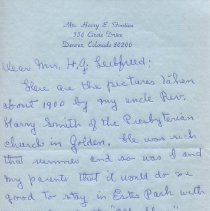 Mrs. Harry E.
Circle Drive
Denver, Colorado 80206
Dear Mrs. H.G.
Here are the pictures taken
about 1900 by my uncle Rev.
Harry Smith of the Presbyterian
church in Golden. He was sick
that summer and so was I and
my parents that it would do us
good to stay in Estes Park with